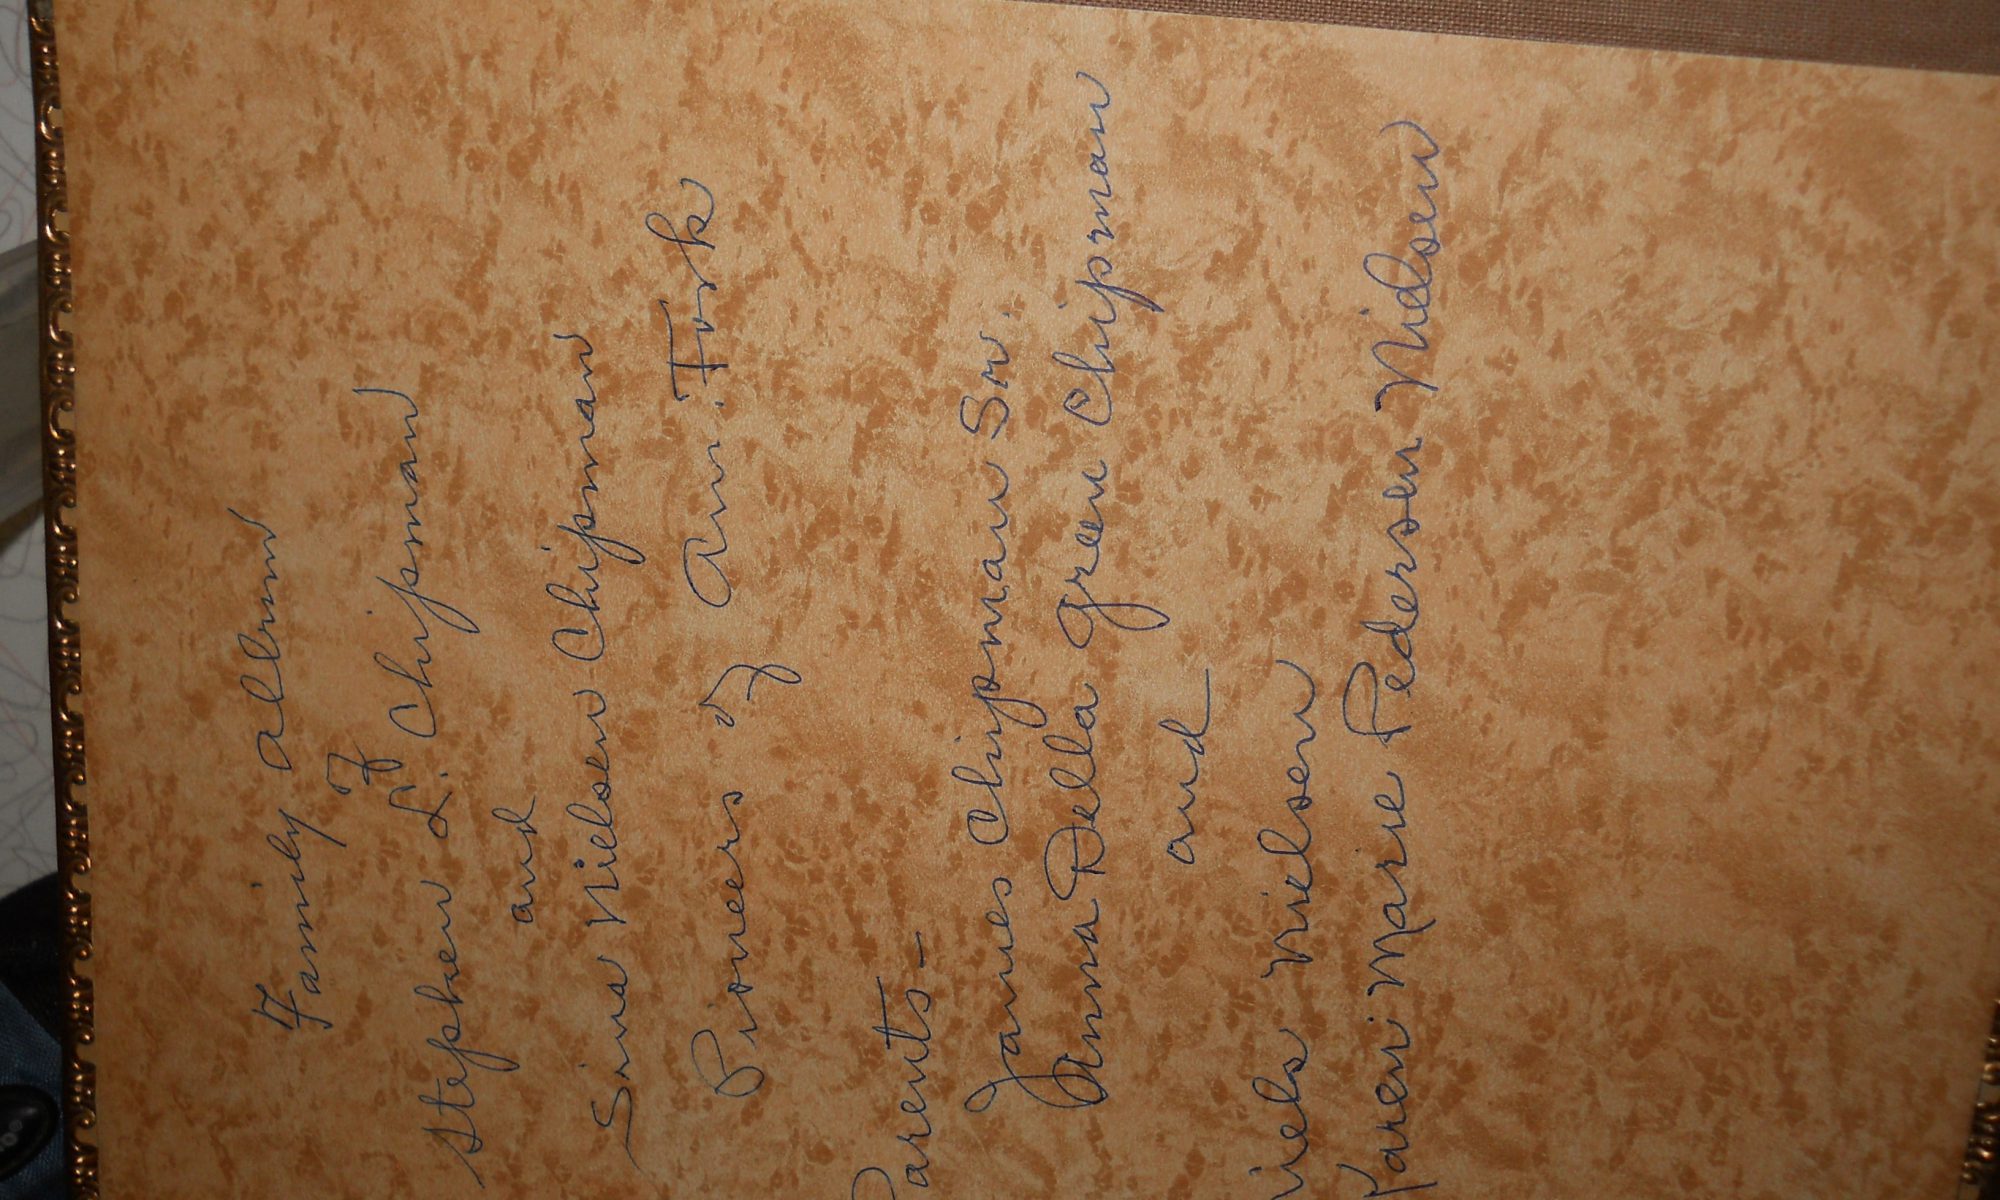 Family Album
of
Stephen L. Chipman
and
Sina Nielsen Chipman
Pioneers of Am. Fork
Parents-
James Chipman Sr.
Anna Della Green Chipman
and
Niels Nielsen
Karen Marie Pedersen Nielsen